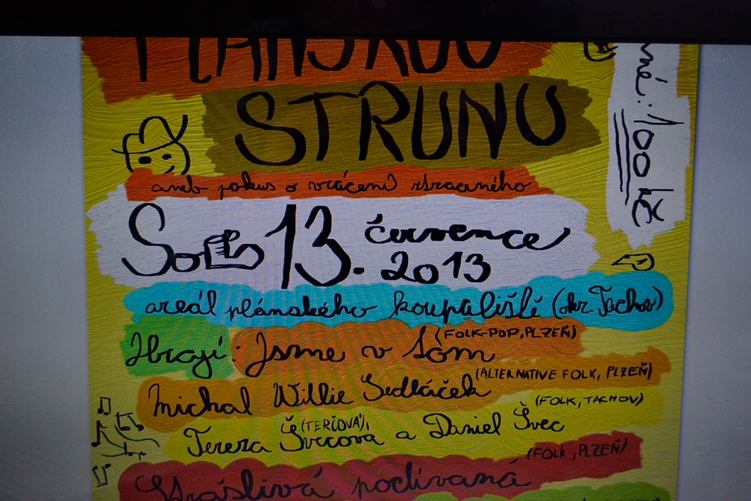 PLÁNSKOU
STRUNU
né: 100 kč
aneb pokus o vrácení ztraceného
13. července
2013
areál plánského koupaliště (okr. Tachov)
Hrají: Jsme v Som (FOLK-POP, PLZEŇ)
Michal Willie Sedláček (ALTERNATIVE FOLK, PLZEŇ)
Tereza Švecová (TERČOVÁ) a Daniel Švec (FOLK, TACHOV)
podívaná (FOLK, PLZEŇ)